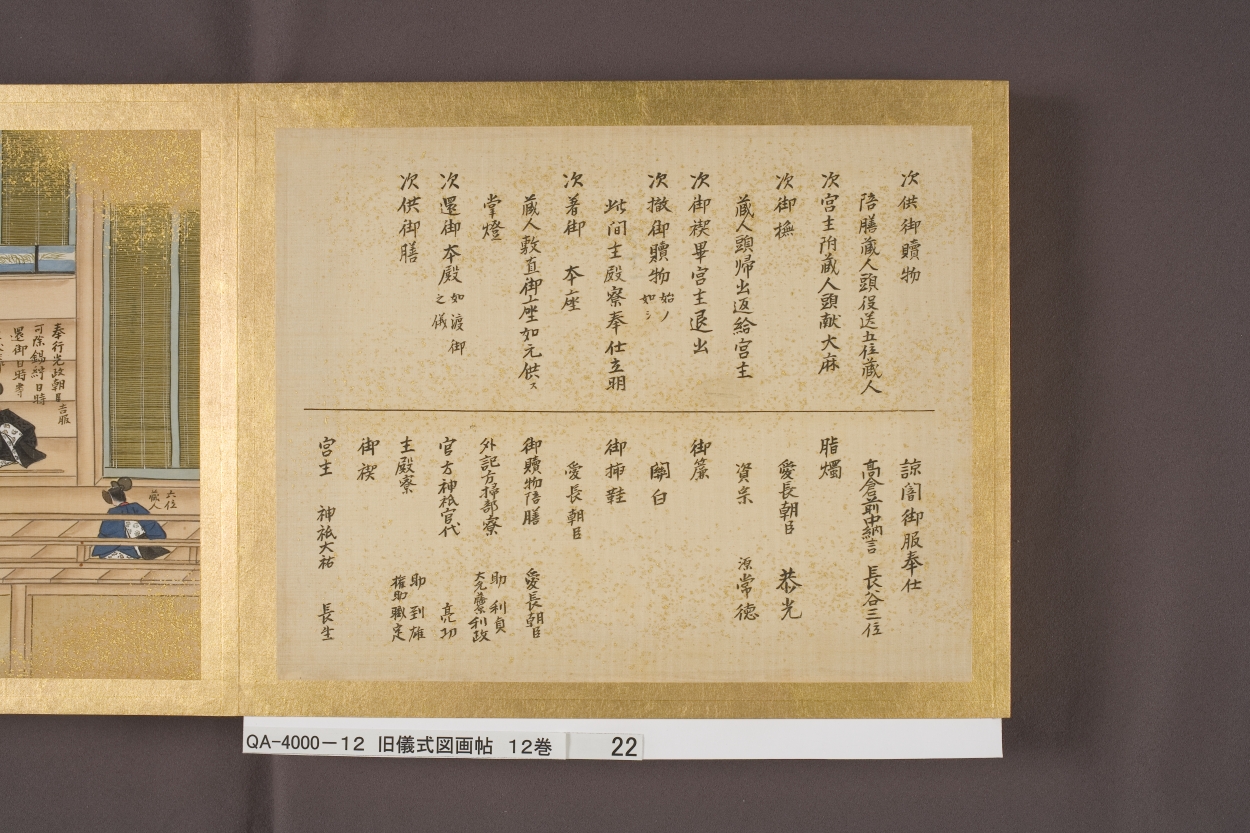 次供御贖物
陪膳蔵人頭役送五位蔵人
次宮主附蔵人頭献大麻
次御撫
蔵人頭帰出返給宮主
次御禊畢宮主退出
次撤御贖物 始ノ如シ
此間主殿寮奉仕立明
次着御 本座
蔵人敷直御座如元供ス
掌燈
次還御本殿 如渡御之儀
次供御膳
諒闇御服奉仕
高倉前中納言 長谷三位
脂燭
愛長朝臣 恭光
資宗 源常徳
御簾
関白
御挿鞋
愛長朝臣
御贖物陪膳 愛長朝臣
外記方掃部寮 助利貞
利政
官方神祇官代 亮功
主殿寮 助到雄
権助職定
御禊
宮主 神祇大祐 長生
奉行光政朝臣吉服
可除錫紵日時
還御日時等
六位
蔵人
QA-4000-12 旧儀式図画帖 12巻 22